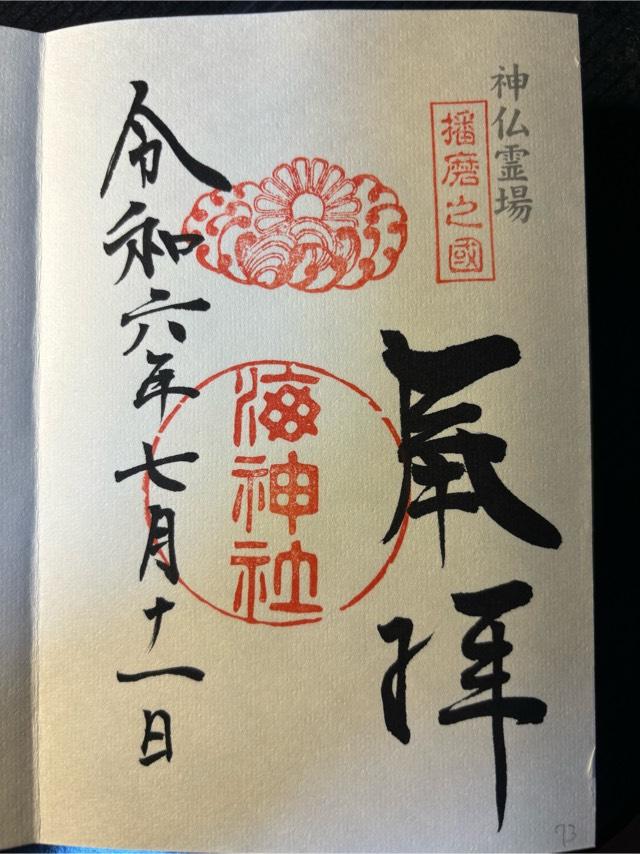 神仏霊場
播磨之國
奉拝
海神社
令和六年七月十一日
73